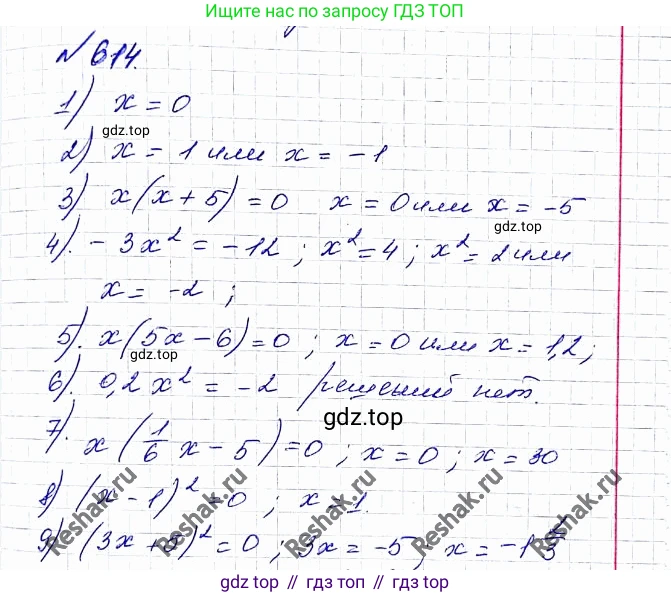 Ищите нас в поиске по запросу ГДЗ ТОП
№614.
1) x = 0
gdz.top
2) x = 1 или x = -1
3) x(x+5) = 0 x = 0 или x = -5
gdz.top
4). -3x² = -12 ; x² = 4 ; x² = 2 или
x = -2 ;
5). x(5x-6) = 0 ; x = 0 или x = 1,2 ;
gdz.top
6). 0,2x² = -2 решений нет.
gdz.top
7). x(1/6 x - 5) = 0 ; x = 0 ; x = 30
8) (x-1)² = 0 ; x = 1.
9) (3x+5)² = 0 ; 3x = -5
Reshak.ru
Reshak.ru
Reshak.ru
Reshak.ru
gdz top // гдз топ // гдз.топ // gdz.top